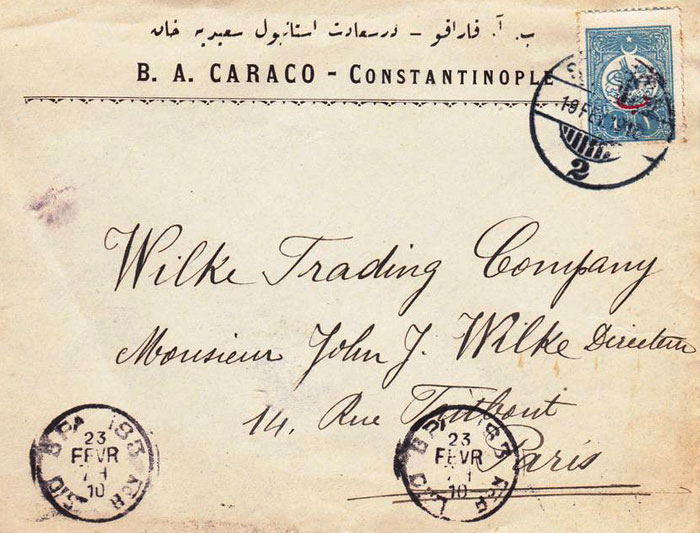 ب. آ. قاراقو - درسعادت استانبول سعيديه خان
B. A. CARACO - CONSTANTINOPLE
2
Wilke Trading Company
Monsieur John J. Wilke Directeur
14. Rue Taitbout
Paris
23
FEVR
10
23
FEVR
10